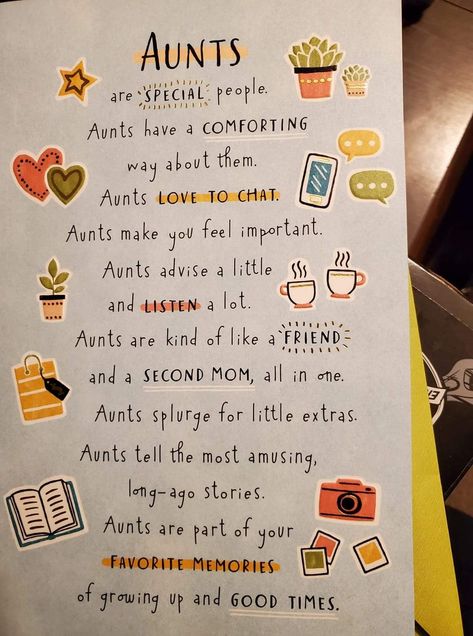 AUNTS
are SPECIAL people.
Aunts have a COMFORTING
way about them.
Aunts LOVE TO CHAT.
Aunts make you feel important.
Aunts advise a little
and LISTEN a lot.
Aunts are kind of like a FRIEND
and a SECOND MOM, all in one.
Aunts splurge for little extras.
Aunts tell the most amusing,
long-ago stories.
Aunts are part of your
FAVORITE MEMORIES
of growing up and GOOD TIMES.